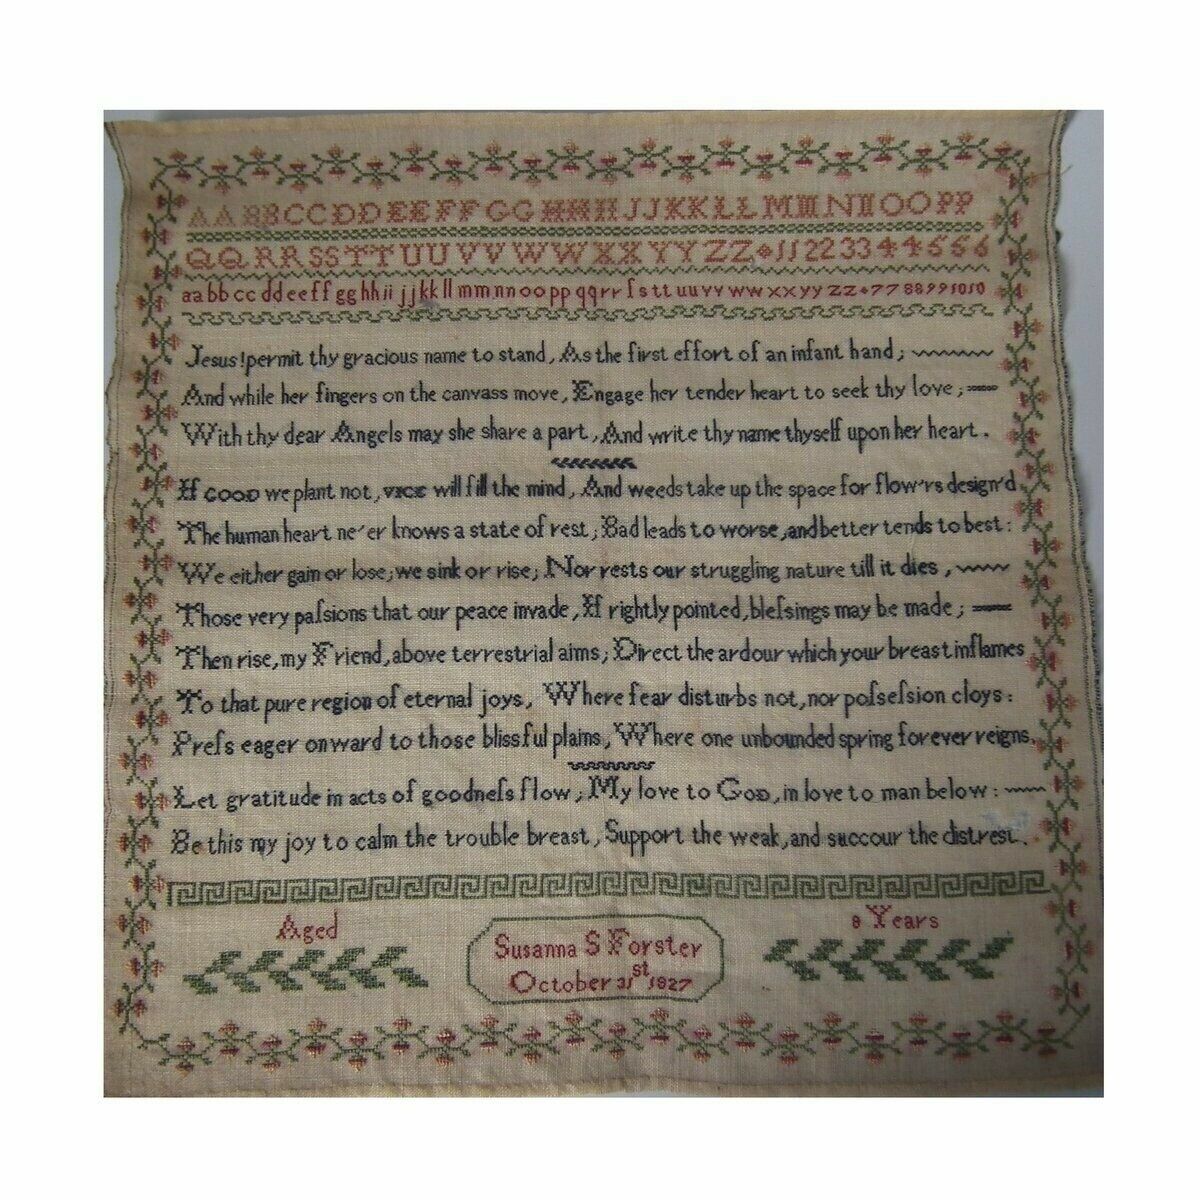 AABBCCDDEEFFGGHHIIJJKKLLMMNNOOPP
QQRRSSTTUUVVWWXXYYZZ 1122334455666
aabbccddeeffgghhiijjkkllmmnnooppqqrrſsttuuvvwwxxyyzz 778899 1010
Jesus! permit thy gracious name to stand, As the first effort of an infant hand;
And while her fingers on the canvass move, Engage her tender heart to seek thy love;
With thy dear Angels may she share a part, And write thy name thyself upon her heart.
If GOOD we plant not, VICE will fill the mind, And weeds take up the space for flow'rs design'd
The human heart ne'er knows a state of rest; Bad leads to worse, and better tends to best:
We either gain or lose; we sink or rise; Nor rests our struggling nature till it dies,
Those very paſsions that our peace invade, If rightly pointed, bleſsings may be made;
Then rise, my Friend, above terrestrial aims; Direct the ardour which your breast inflames
To that pure region of eternal joys, Where fear disturbs not, nor poſseſsion cloys:
Preſs eager onward to those blissful plains, Where one unbounded spring for ever reigns.
Let gratitude in acts of goodneſs flow; My love to GOD, in love to man below:
Be this my joy to calm the trouble breast, Support the weak, and succour the distrest.
Aged 8 Years
Susanna S Forster
October 31st 1827